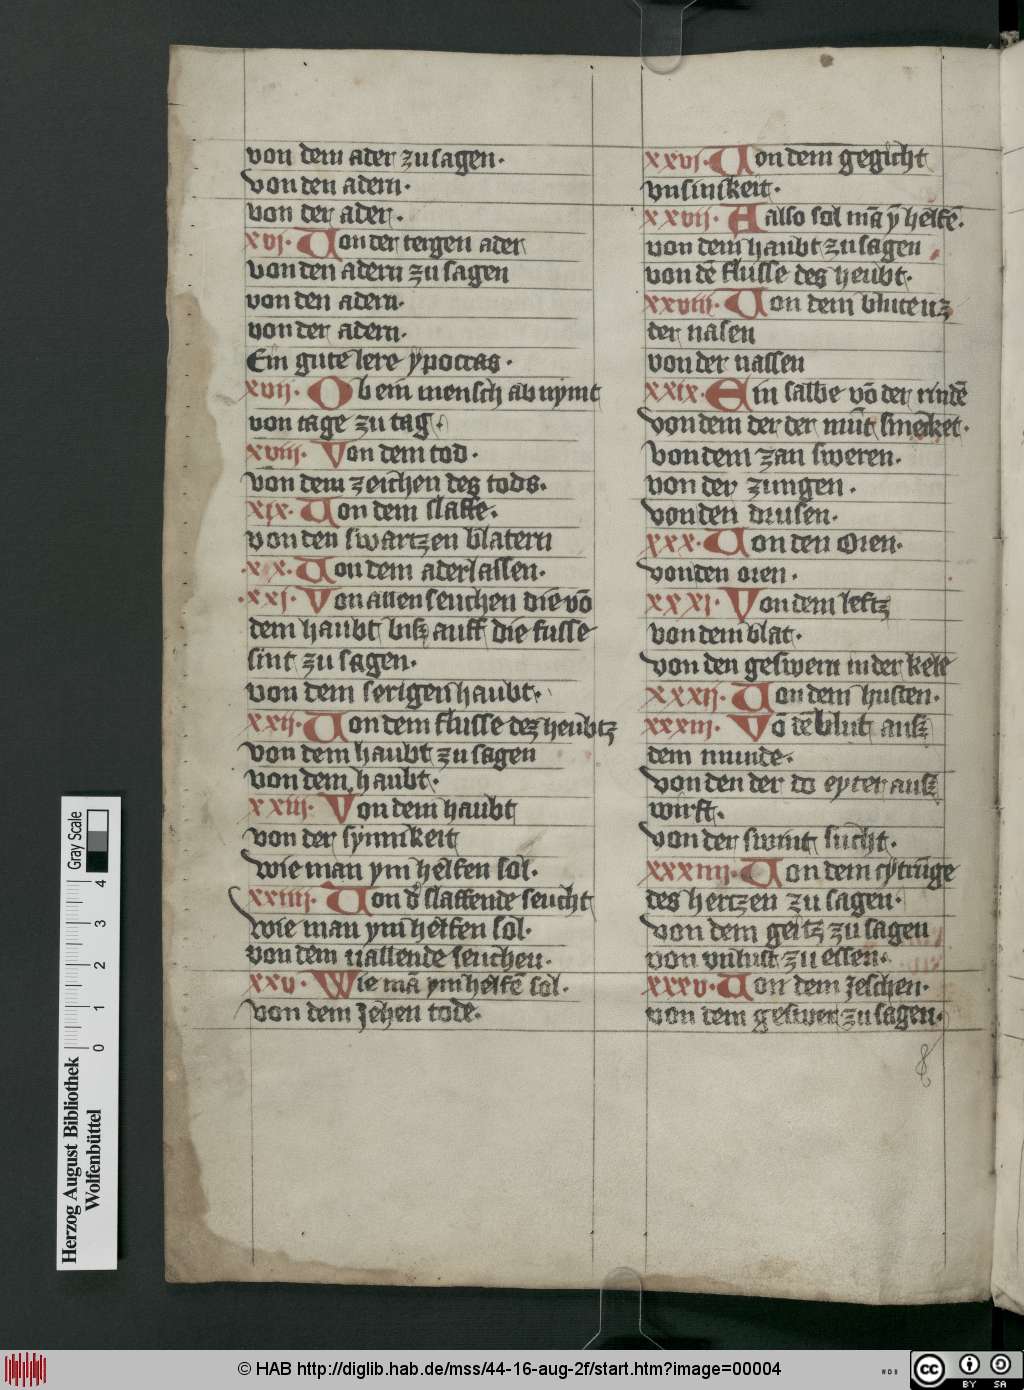 von dem ader zu sagen.
von den adern.
von der ader.
xvj. Von der teigen ader
von den adern zu sagen
von den adern.
von der adern.
Ein gute lere ypocras.
xvij. Ob ein mensch ab nymt
von tage zu tag.
xviij. Von dem tod.
von dem zeichen des tods.
xix. Von dem slaffe.
von den swartzen blatern
.xx. Von dem aderlassen.
.xxj. Von allen seuchen die vō
dem haubt bisz auff die fusse
sint zu sagen.
von dem serigen haubt.
xxij. Von dem flusse dez heubtz
von dem haubt zu sagen
von dem haubt.
xxiij. Von dem haubt
von der synnikeit
wie man ym helfen sol.
xxiiij. Von d' slaffende seucht
wie man ym helfen sol.
von dem uallende seuchen.
xxv. Wie mā ym helfē sol.
von dem Jehen tode.
xxvj. Von dem gegicht
vnsinikeit.
xxvij. Also sol mā ȳ helfē.
von dem haubt zu sagen
von dē flusse des heubt.
xxviij. Von dem blute uz
der nasen
von der nassen
xxix. Ein salbe vō der rindē
von dem der der mūt smecket.
von dem zan sweren.
von der zungen.
von den drusen.
xxx. Von den Oren.
von den oren.
xxxj. Von dem leftz
von dem blat.
von den geswern in der kele
xxxij. Von dem husten.
xxxiij. Vō dē blut ausz
dem munde.
von den der do eyter ausz
wirft.
von der swint sucht.
xxxiiij. Von dem rytūge
des hertzen zu sagen.
von dem geitz zu sagen
von vnlust zu essen.
xxxv. Von dem Jeschen.
von dem geswer zu sagen.
Herzog August Bibliothek
Wolfenbüttel
0 1 2 3 4
Gray Scale
© HAB http://diglib.hab.de/mss/44-16-aug-2f/start.htm?image=00004
WDB
cc BY SA